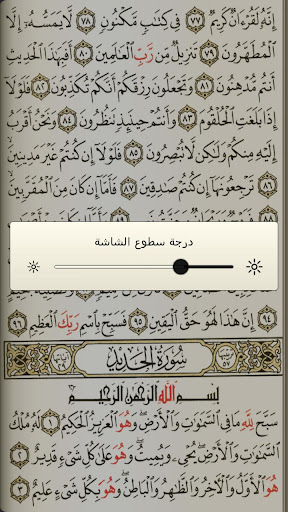 إِنَّهُۥ لَقُرْءَانٌ كَرِيمٌ ٧٧ فِي كِتَٰبٍ مَّكْنُونٍ ٧٨ لَّا يَمَسُّهُۥٓ إِلَّا
ٱلْمُطَهَّرُونَ ٧٩ تَنزِيلٌ مِّن رَّبِّ ٱلْعَٰلَمِينَ ٨٠ أَفَبِهَٰذَا ٱلْحَدِيثِ
أَنتُم مُّدْهِنُونَ ٨١ وَتَجْعَلُونَ رِزْقَكُمْ أَنَّكُمْ تُكَذِّبُونَ ٨٢ فَلَوْلَآ
إِذَا بَلَغَتِ ٱلْحُلْقُومَ ٨٣ وَأَنتُمْ حِينَئِذٍ تَنظُرُونَ ٨٤ وَنَحْنُ أَقْرَبُ
إِلَيْهِ مِنكُمْ وَلَٰكِن لَّا تُبْصِرُونَ ٨٥ فَلَوْلَآ إِن كُنتُمْ غَيْرَ مَدِينِينَ
٨٦ تَرْجِعُونَهَآ إِن كُنتُمْ صَٰدِقِينَ ٨٧ فَأَمَّآ إِن كَانَ مِنَ ٱلْمُقَرَّبِينَ
درجة سطوع الشاشة
٩٤ إِنَّ هَٰذَا لَهُوَ حَقُّ ٱلْيَقِينِ ٩٥ فَسَبِّحْ بِٱسْمِ رَبِّكَ ٱلْعَظِيمِ ٩٦
سُورَةُ الحَدِيدِ
بِسْمِ ٱللَّهِ ٱلرَّحْمَٰنِ ٱلرَّحِيمِ
سَبَّحَ لِلَّهِ مَا فِي ٱلسَّمَٰوَٰتِ وَٱلْأَرْضِۖ وَهُوَ ٱلْعَزِيزُ ٱلْحَكِيمُ ١ لَهُۥ مُلْكُ
ٱلسَّمَٰوَٰتِ وَٱلْأَرْضِۖ يُحْيِۦ وَيُمِيتُۖ وَهُوَ عَلَىٰ كُلِّ شَيْءٍ قَدِيرٌ ٢
هُوَ ٱلْأَوَّلُ وَٱلْءَاخِرُ وَٱلظَّٰهِرُ وَٱلْبَاطِنُۖ وَهُوَ بِكُلِّ شَيْءٍ عَلِيمٌ ٣